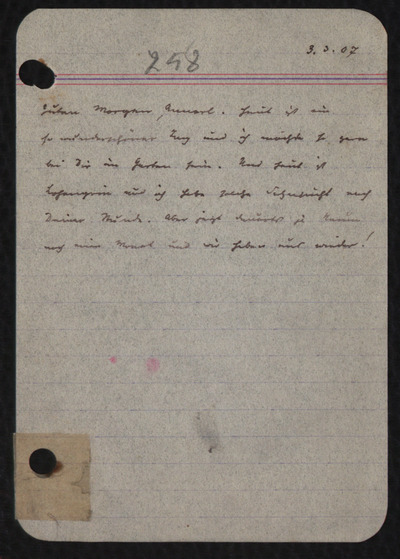 258
3.3.07
Guten Morgen, . Heut ist ein
so wunderschöner Tag und ich möchte so gern
bei Dir im Garten sein. Und heut ist
Lohengrin und ich habe solche Sehnsucht nach
Deiner Stunde. Aber jetzt dauerts ja kaum
noch einen Monat und wir haben uns wieder!